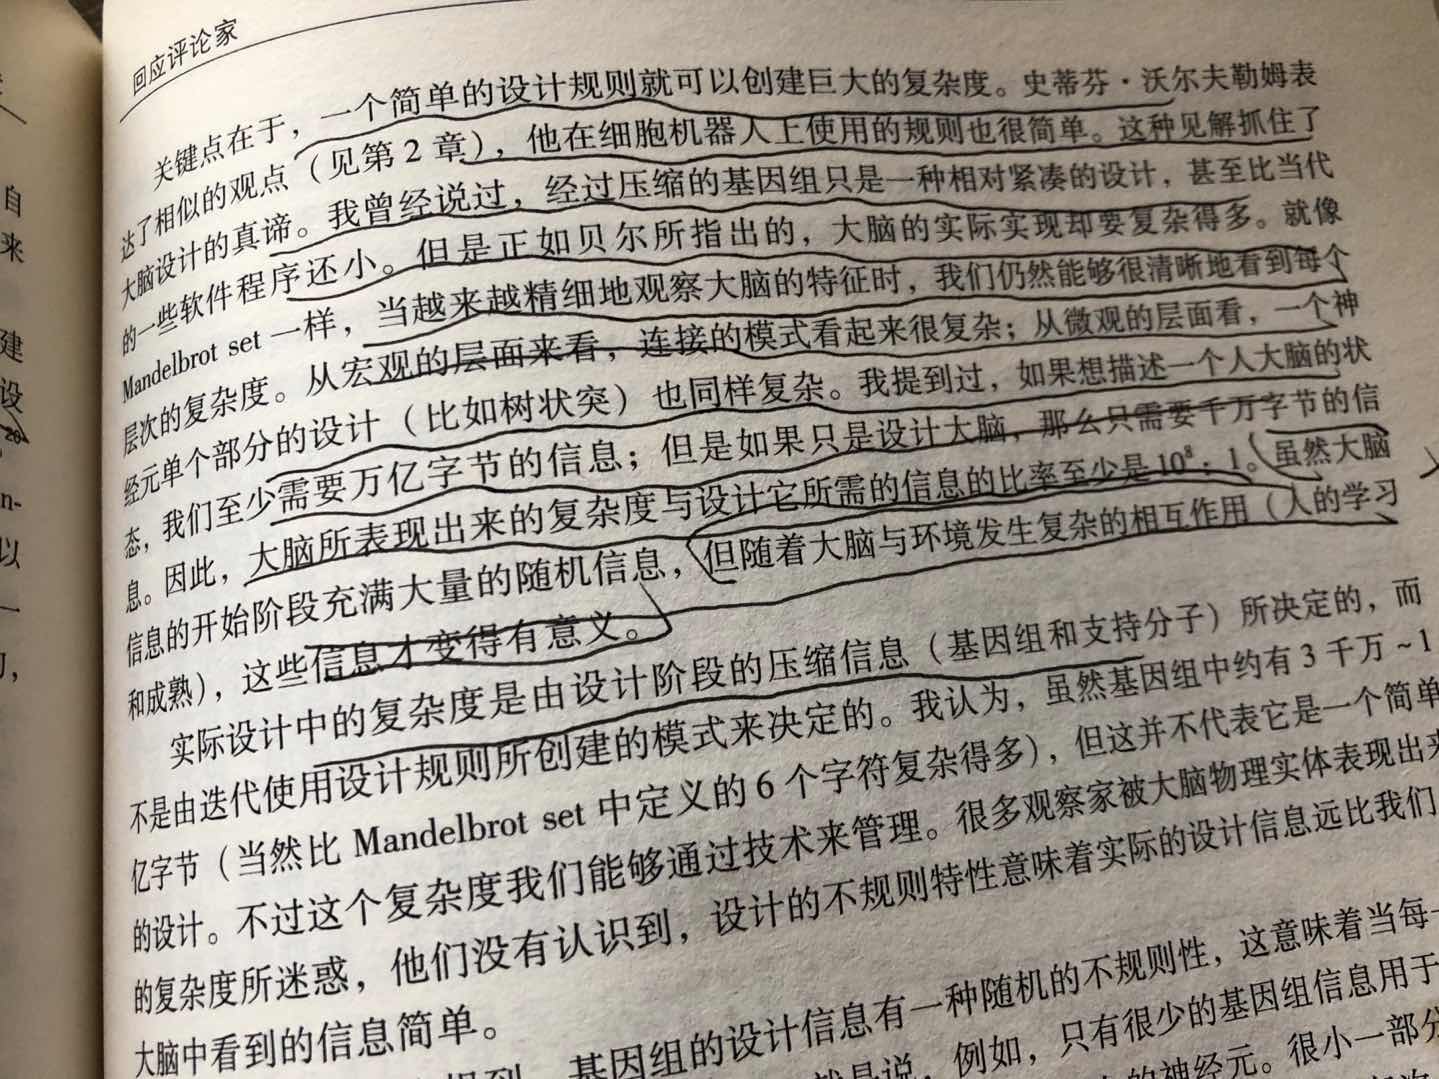 回应评论家
关键点在于，一个简单的设计规则就可以创建巨大的复杂度。史蒂芬·沃尔夫勒姆表
达了相似的观点（见第2章），他在细胞机器人上使用的规则也很简单。这种见解抓住了
大脑设计的真谛。我曾经说过，经过压缩的基因组只是一种相对紧凑的设计，甚至比当代
的一些软件程序还小。但是正如贝尔所指出的，大脑的实际实现却要复杂得多。就像
Mandelbrot set一样，当越来越精细地观察大脑的特征时，我们仍然能够很清晰地看到每个
层次的复杂度。从宏观的层面来看，连接的模式看起来很复杂；从微观的层面看，一个神
经元单个部分的设计（比如树状突）也同样复杂。我提到过，如果想描述一个人大脑的状
态，我们至少需要万亿字节的信息；但是如果只是设计大脑，那么只需要千万字节的信
息。因此，大脑所表现出来的复杂度与设计它所需的信息的比率至少是10⁸：1。虽然大脑
信息的开始阶段充满大量的随机信息，但随着大脑与环境发生复杂的相互作用（人的学习
和成熟），这些信息才变得有意义。
实际设计中的复杂度是由设计阶段的压缩信息（基因组和支持分子）所决定的，而
不是由迭代使用设计规则所创建的模式来决定的。我认为，虽然基因组中约有3千万~1
亿字节（当然比Mandelbrot set中定义的6个字符复杂得多），但这并不代表它是一个简单
的设计。不过这个复杂度我们能够通过技术来管理。很多观察家被大脑物理实体表现出来
的复杂度所迷惑，他们没有认识到，设计的不规则特性意味着实际的设计信息远比我们
大脑中看到的信息简单。
基因组的设计信息有一种随机的不规则性，这意味着当每一
就是说，例如，只有很少的基因组信息用于
的神经元。很小一部分
自
来
建
设
20
n-
以
一